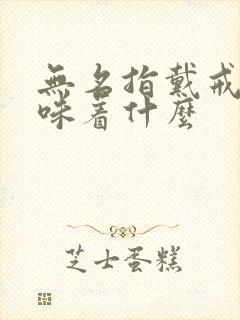 無名指戴戒
咪着什麼
芝士蛋糕